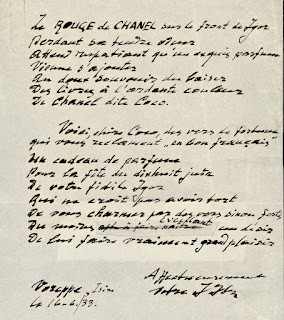 Le ROUGE de CHANEL sur le front de Igor
Perdant sa tendre odeur
Attend impatient qu'un exquis parfum
Vienne s'ajouter
Au doux souvenir du baiser
Des lèvres à l'ardente couleur
De Chanel dite Coco.
Voici, chère Coco, des vers de fortune
qui vous réclament „en bon français"
Un cadeau de parfum
Pour la fête du dixhuit juin
De votre fidèle Igor
Qui ne croit pas avoir tort
De vous charmer par des vers sinon forts
Du moins éveillant un désir
De lui faire vraiment grand plaisir
Affectueusement
Voreppe, Isère
votre
le 16-6/33.